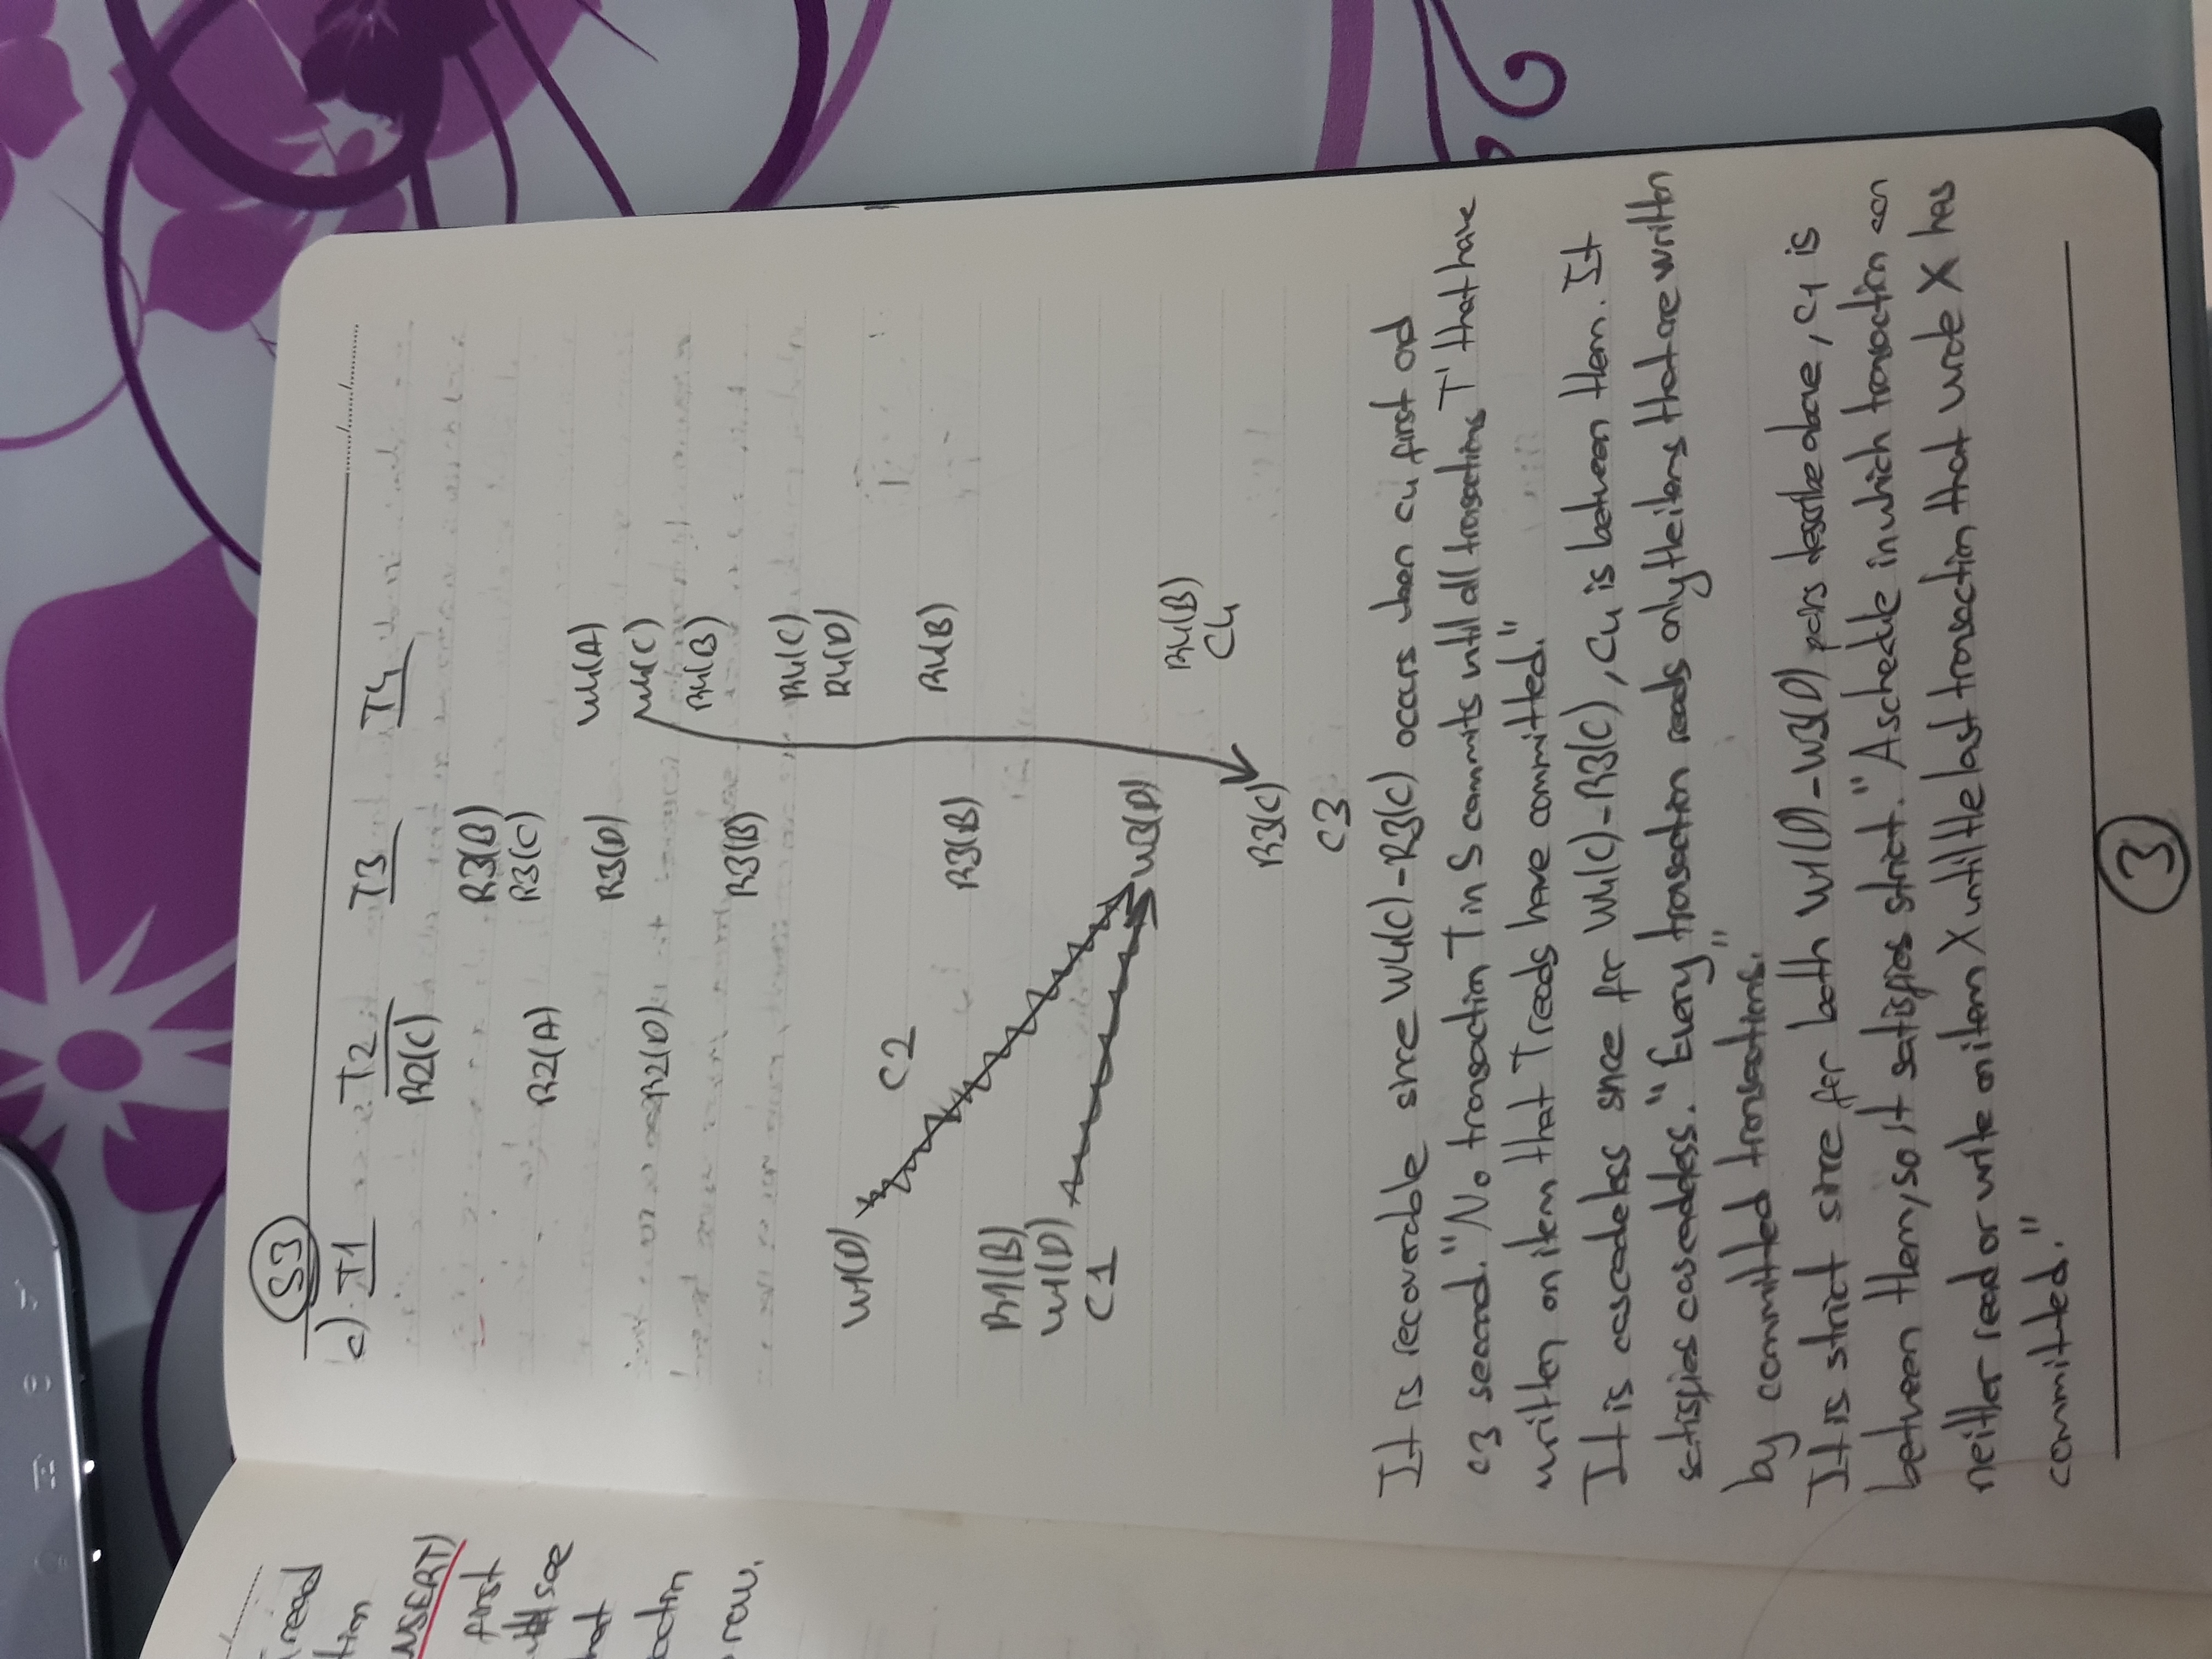 read
tion
INSERT)
first
see
hat
actin
row.
S3
c) T1 T2 T3 T4
R2(C)
R3(B)
R3(C)
R2(A)
W4(A)
R3(D)
W4(C)
R2(D)
R4(B)
R3(B)
R4(C)
R4(D)
W1(D)
C2
R4(B)
R3(B)
R1(B)
W1(D)
C1
W3(D)
R4(B)
C4
R3(C)
C3
It is recoverable since W4(C)-R3(C) occurs when c4 first and
c3 second. "No transaction T in S commits until all transactions T' that have
written an item that T reads have committed."
It is cascadeless since for W4(C)-R3(C), C4 is between them. It
satisfies cascadeless. "Every transaction reads only the items that are written
by committed transactions."
It is strict since for both W1(D)-W3(D) pairs describe above, C1 is
between them, so it satisfies strict. "A schedule in which transaction can
neither read or write an item X until the last transaction that wrote X has
committed."
3